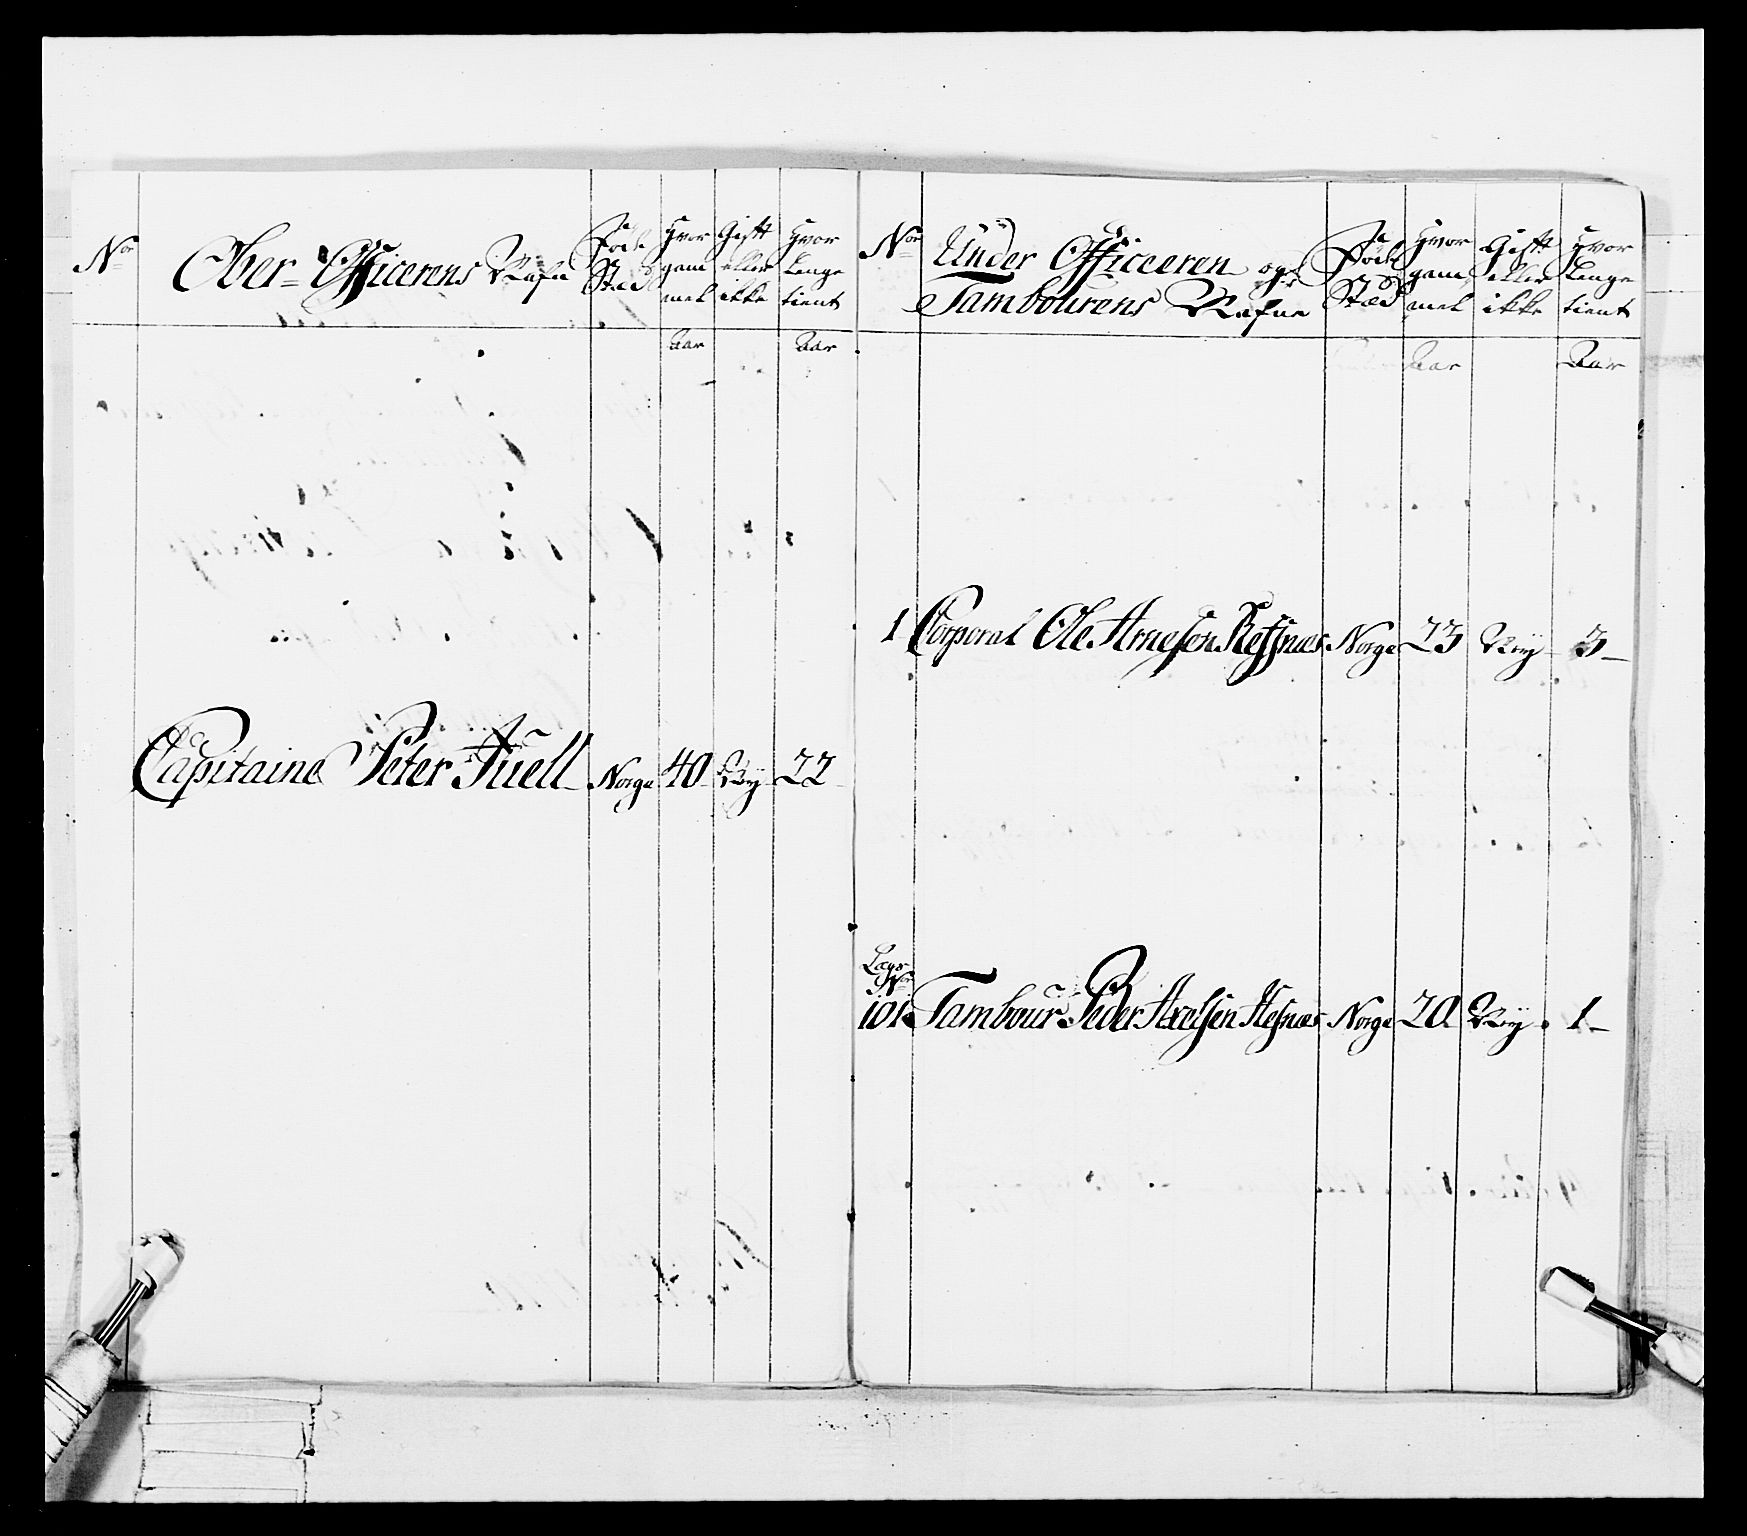 Nor Ober-Officerens Nafn Føde Stæd Hvor gam mel Gift eller ikke Hvor Lenge tient
Aar Aar
Capitaine Peter Juell Norge 40 Ney 22
Nor Under Officeren og Tambourens Nafne Føde Stæd Hvor gam mel Gift eller ikke Hvor Lenge tient
Aar Aar
1 Corporal Ole Arnesen Norge 23 Ney 3
Lægs Nor
101 Tambour Peder Axelsen Norge 20 Ney 1